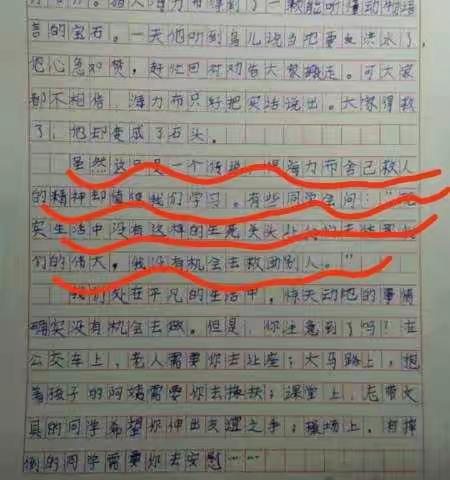 音的宝石。一天他听到鸟儿说当地要发洪水了，
他心急如焚，赶忙回村劝告大家搬走。可大家
都不相信，海力布只好把实话说出。大家得救
了，他却变成了石头。
虽然这只是一个传说，但海力布舍己救人
的精神却值得我们学习。有些同学会问："现
实生活中没有这样的生死关头让
们的伟大，我没有机会去救助别人。"
我们处在平凡的生活中，惊天动地的事情
确实没有机会去做。但是，你注意到了吗？在
公交车上，老人需要你去让座；大马路上，抱
着孩子的阿姨需要你去搀扶；课堂上，忘带文
具的同学希望你伸出支援之手；操场上，有摔
倒的同学需要你去安慰……